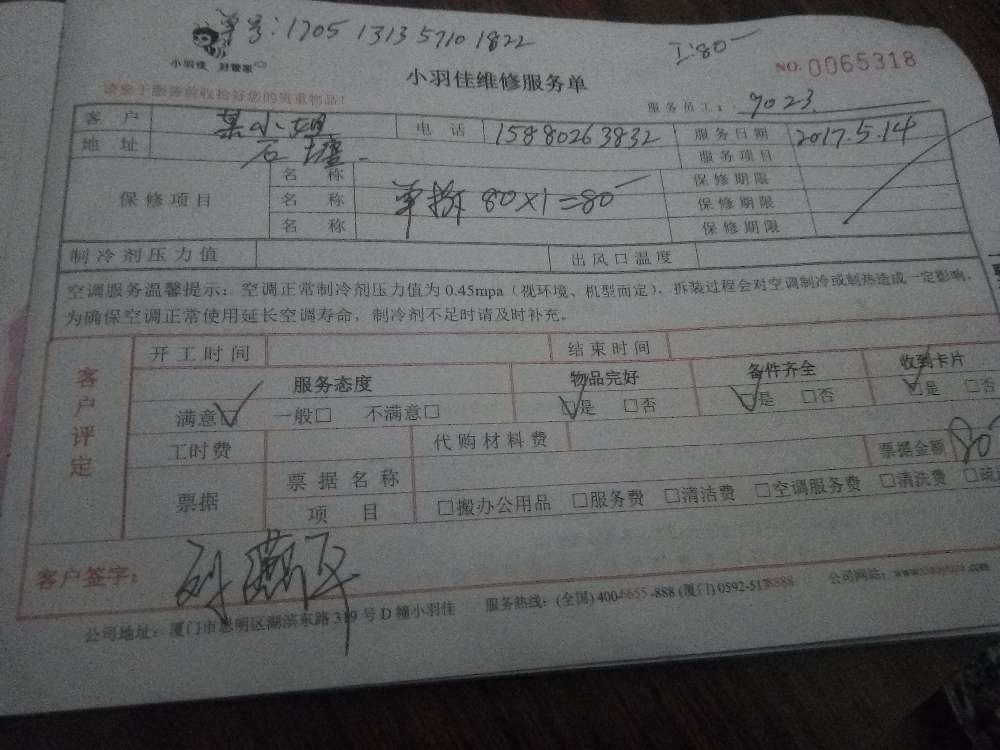 单号：1705 1313 5710 1822
工:80
小羽佳 好管家
小羽佳维修服务单
NO. 0065318
请您于服务前收拾好您的贵重物品！
服务员工： 9023
客户 某小姐 电话 15880263832 服务日期 2017.5.14
地址 石塘 服务项目
保修项目
名称 保修期限
名称 单拆 80×1=80 保修期限
名称 保修期限
制冷剂压力值 出风口温度
空调服务温馨提示：空调正常制冷剂压力值为 0.45mpa（视环境、机型而定），拆装过程会对空调制冷或制热造成一定影响，
为确保空调正常使用延长空调寿命，制冷剂不足时请及时补充。
客户评定
开工时间 结束时间
服务态度 物品完好 备件齐全 收到卡片
满意☑ 一般□ 不满意□ ☑是 □否 ☑是 □否 ☑是 □否
工时费 代购材料费
票据 票据名称 票据金额 80
项目 □搬办公用品 □服务费 □清洁费 □空调服务费 □清洗费
客户签字：
公司地址：厦门市思明区湖滨东路 319 号 D 幢小羽佳 服务热线：(全国) 400-6655-888 (厦门) 0592-5178888 公司网站：